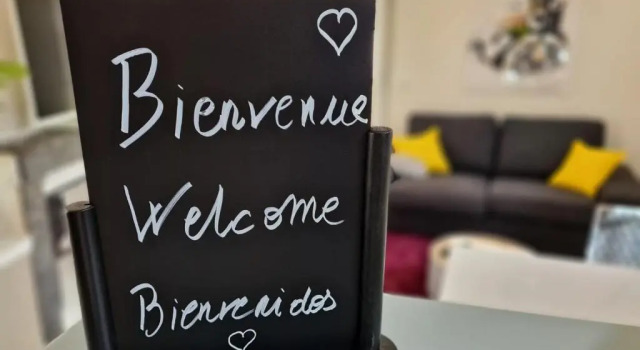 Bienvenue
Welcome
Bienvenidos